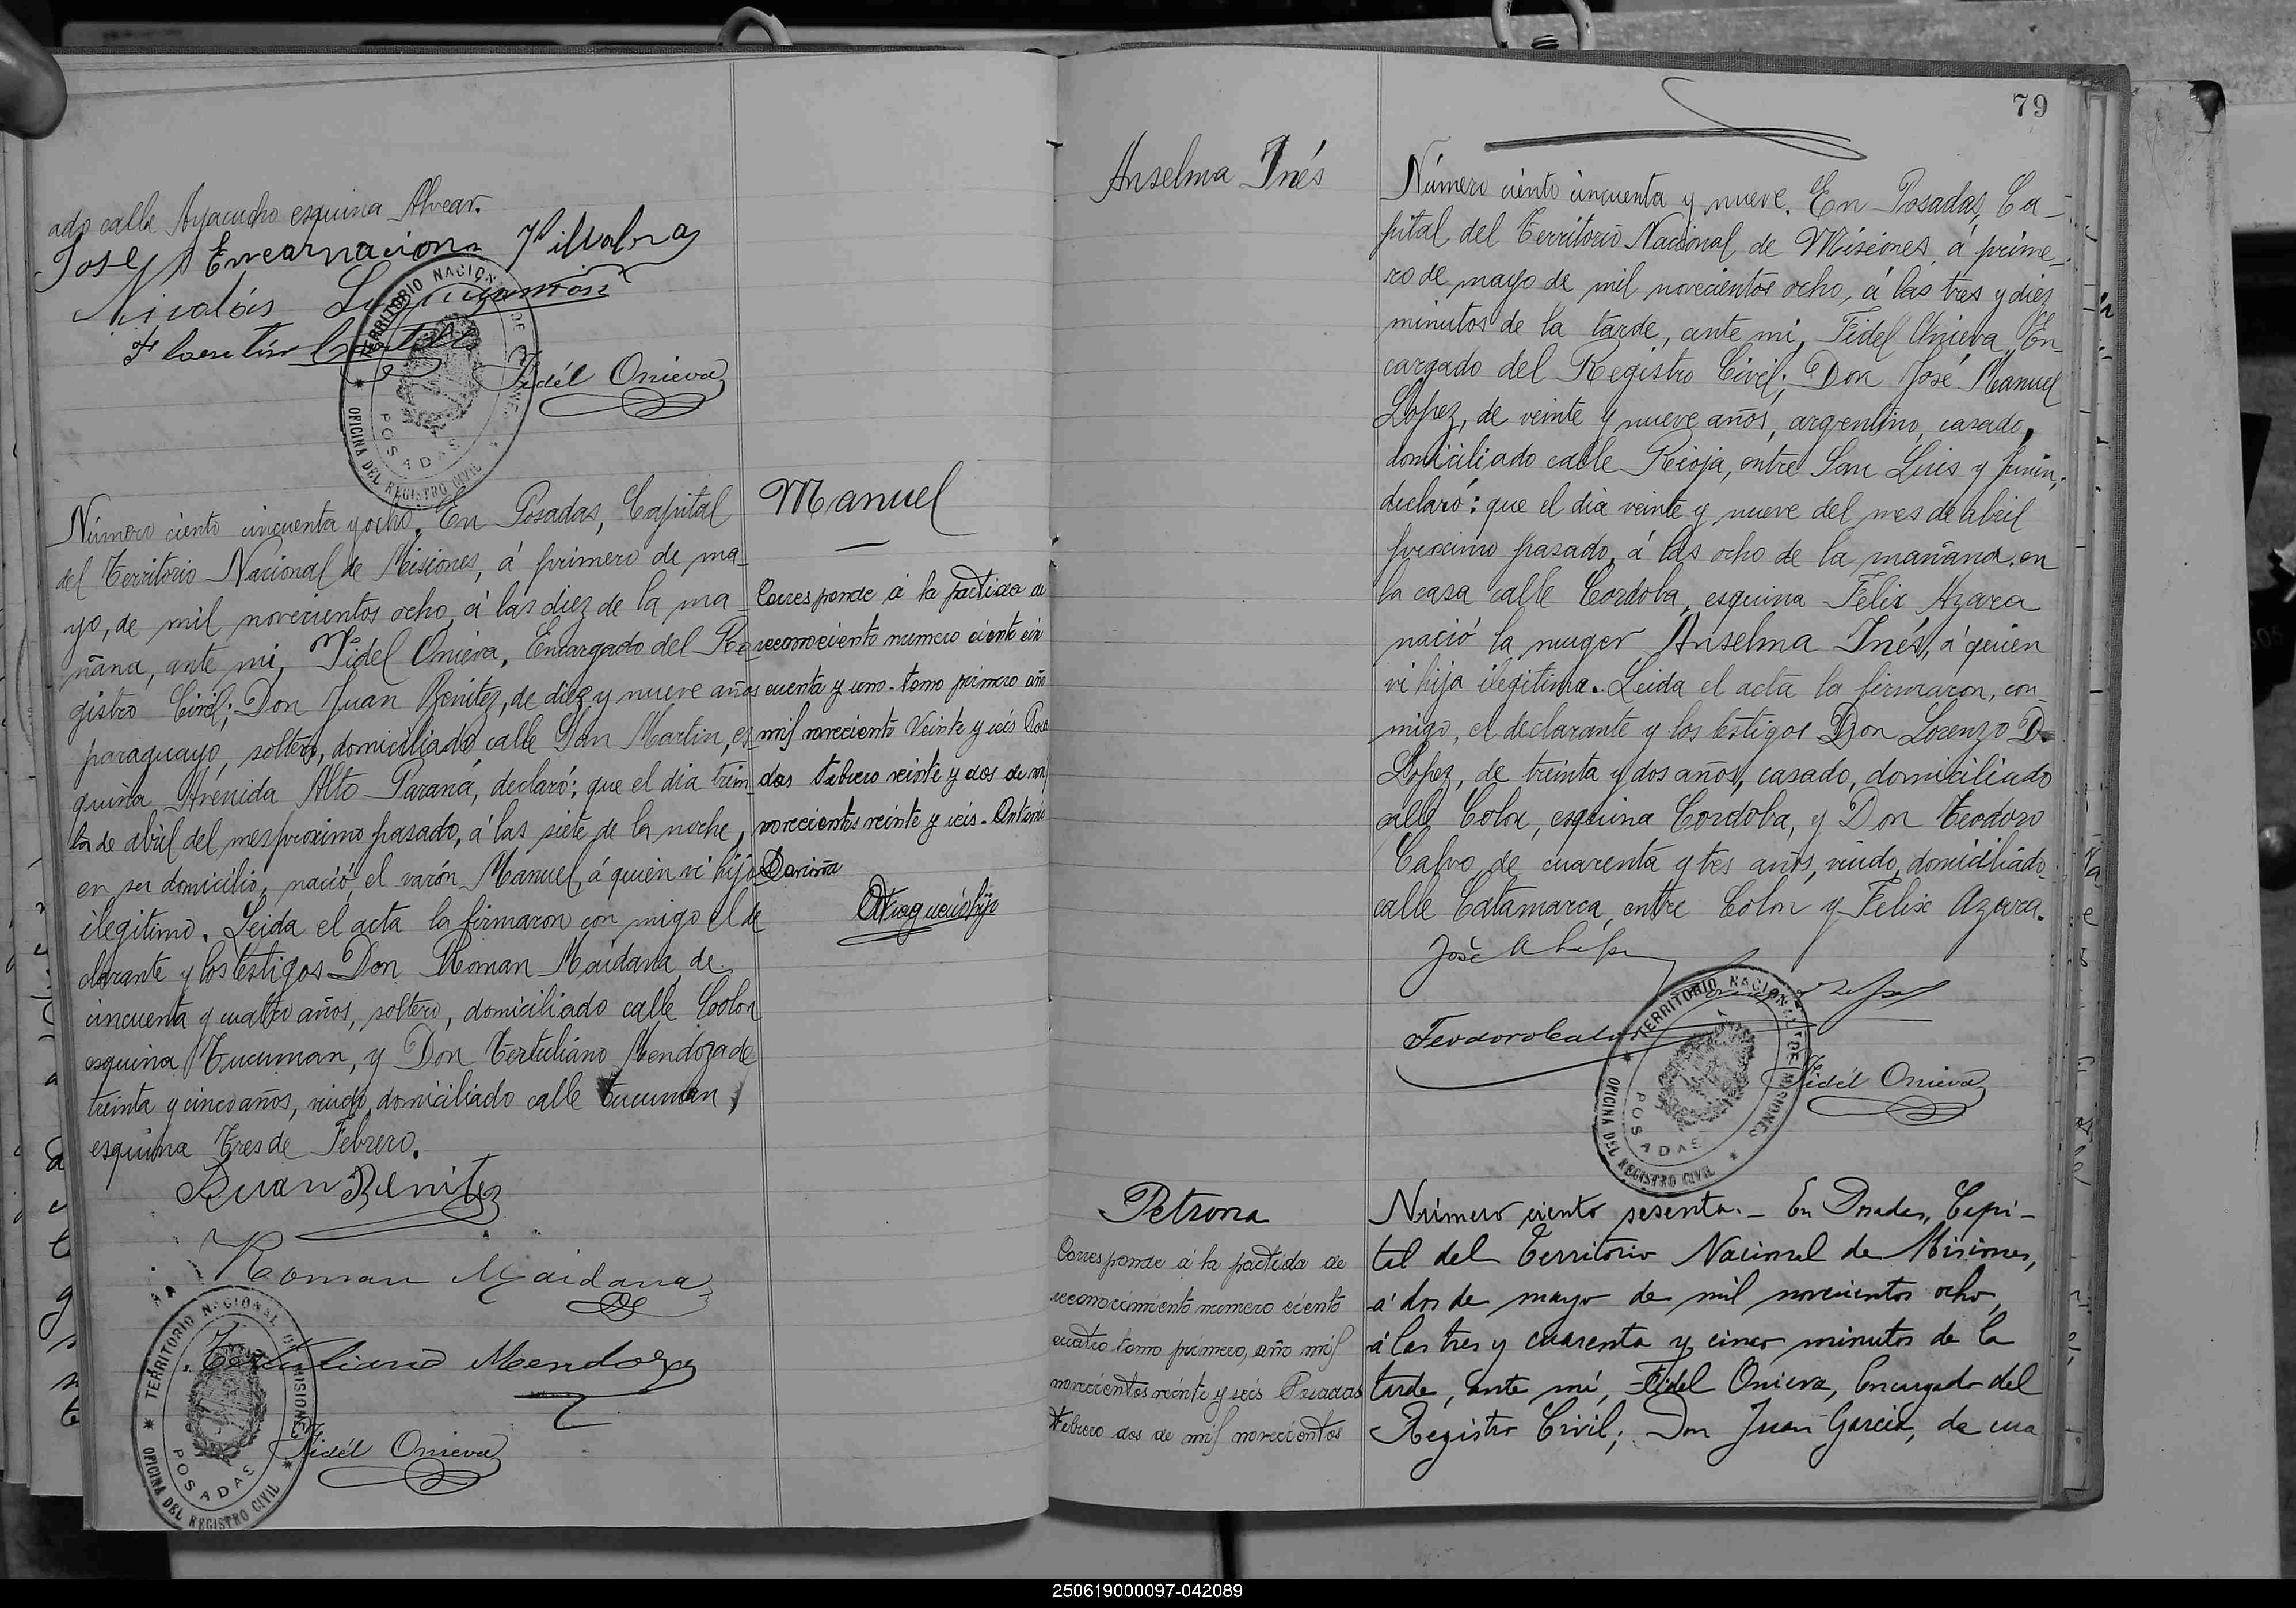 ado calle Ayacucho esquina Alvear.
José Encarnacion Villalva
Nicolás
Florentin
Fidél Onieva
TERRITORIO NACIONAL DE MISIONES
POSADAS
OFICINA DEL REGISTRO CIVIL
Número ciento cincuenta y ocho. En Posadas, Capital
del Territorio Nacional de Misiones, á primero de ma-
yo, de mil novecientos ocho, á las diez de la ma-
ñana, ante mi, Fidel Onieva, Encargado del Re-
gistro Civil; Don Juan Benitez, de diez y nueve años
paraguayo, soltero, domiciliado calle San Martin, es-
quina Avenida Alto Paraná, declaró; que el dia trein-
ta de abril del mes proximo pasado, á las siete de la noche,
en su domicilio, nació el varón Manuel, á quien vi hijo
ilegitimo. Leida el acta la firmaron con migo el de-
clarante y los testigos Don Roman Maidana, de
cincuenta y cuatro años, soltero, domiciliado calle Colon
esquina Tucuman, y Don Tertuliano Mendoza de
treinta y cinco años, viudo, domiciliado calle Tucuman,
esquina Tres de Febrero.
Juan Benitez
Roman Maidana
Tertuliano Mendoza
Fidél Onieva
TERRITORIO NACIONAL DE MISIONES
POSADAS
OFICINA DEL REGISTRO CIVIL
Manuel
Corresponde á la partida de
reconociento numero ciento cin
cuenta y uno - tomo primero año
mil noveciento Veinte y seis Posa
das Febrero veinte y dos de mil
novecientos veinte y seis -
79
Anselma Inés
Número ciento cincuenta y nueve. En Posadas, Ca-
pital del Territorio Nacional de Misiones, á prime-
ro de mayo de mil novecientos ocho, á las tres y diez
minutos de la tarde, ante mi, Fidel Onieva, En-
cargado del Registro Civil; Don José Manuel
Lopez, de veinte y nueve años, argentino, casado,
domiciliado calle Rioja, entre San Luis y Junin,
declaró: que el dia veinte y nueve del mes de abril
proximo pasado, á las ocho de la mañana en
la casa calle Cordoba, esquina Felix Azara
nació la muger Anselma Inés, á quien
vi hija ilegitima. Leida el acta la firmaron, con-
migo, el declarante y los testigos Don Lorenzo D.
Lopez, de treinta y dos años, casado, domiciliado
calle Colon, esquina Cordoba, y Don Teodoro
Calvo, de cuarenta y tres años, viudo, domiciliado
calle Catamarca, entre Colon y Felix Azara.
José M Lopez
Teodoro Calvo
Fidél Onieva
TERRITORIO NACIONAL DE MISIONES
POSADAS
OFICINA DEL REGISTRO CIVIL
Petrona
Corresponde á la partida de
reconocimiento numero ciento
cuatro tomo primero, año mil
novecientos veinte y seis Posadas
Febrero dos de mil novecientos
Número ciento sesenta.- En Posadas, Capi-
tal del Territorio Nacional de Misiones,
á dos de mayo de mil novecientos ocho,
á las tres y cuarenta y cinco minutos de la
tarde, ante mí, Fidel Onieva, Encargado del
Registro Civil; Don Juan García, de cua
250619000097-042089